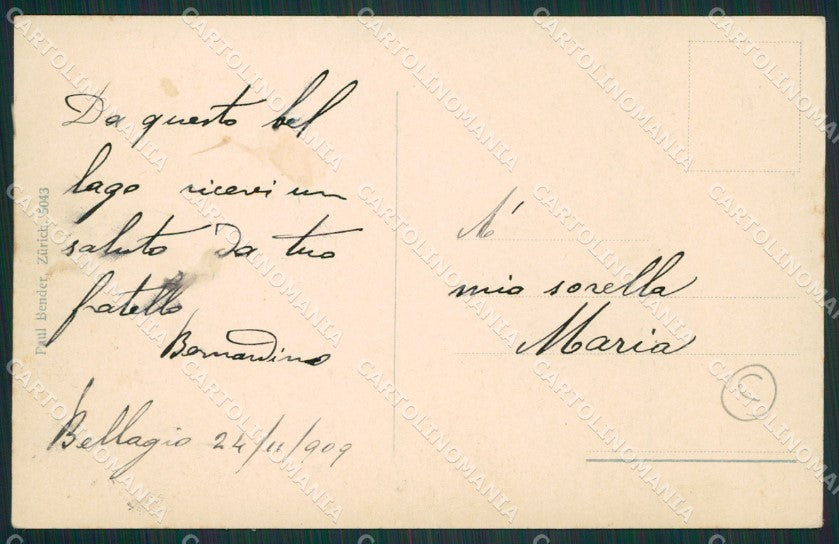 Da questo bel
lago ricevi un
saluto da tuo
fratello
Bernardino
Bellagio 24/11/909
Paul Bender, Zürich, 5043
A'
mia sorella
Maria
C
CARTOLINOMANIA